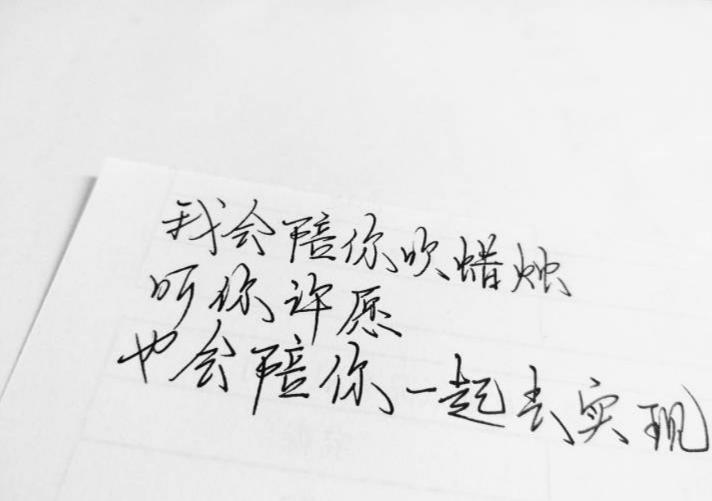 我会陪你吹蜡烛
听你许愿
也会陪你一起去实现